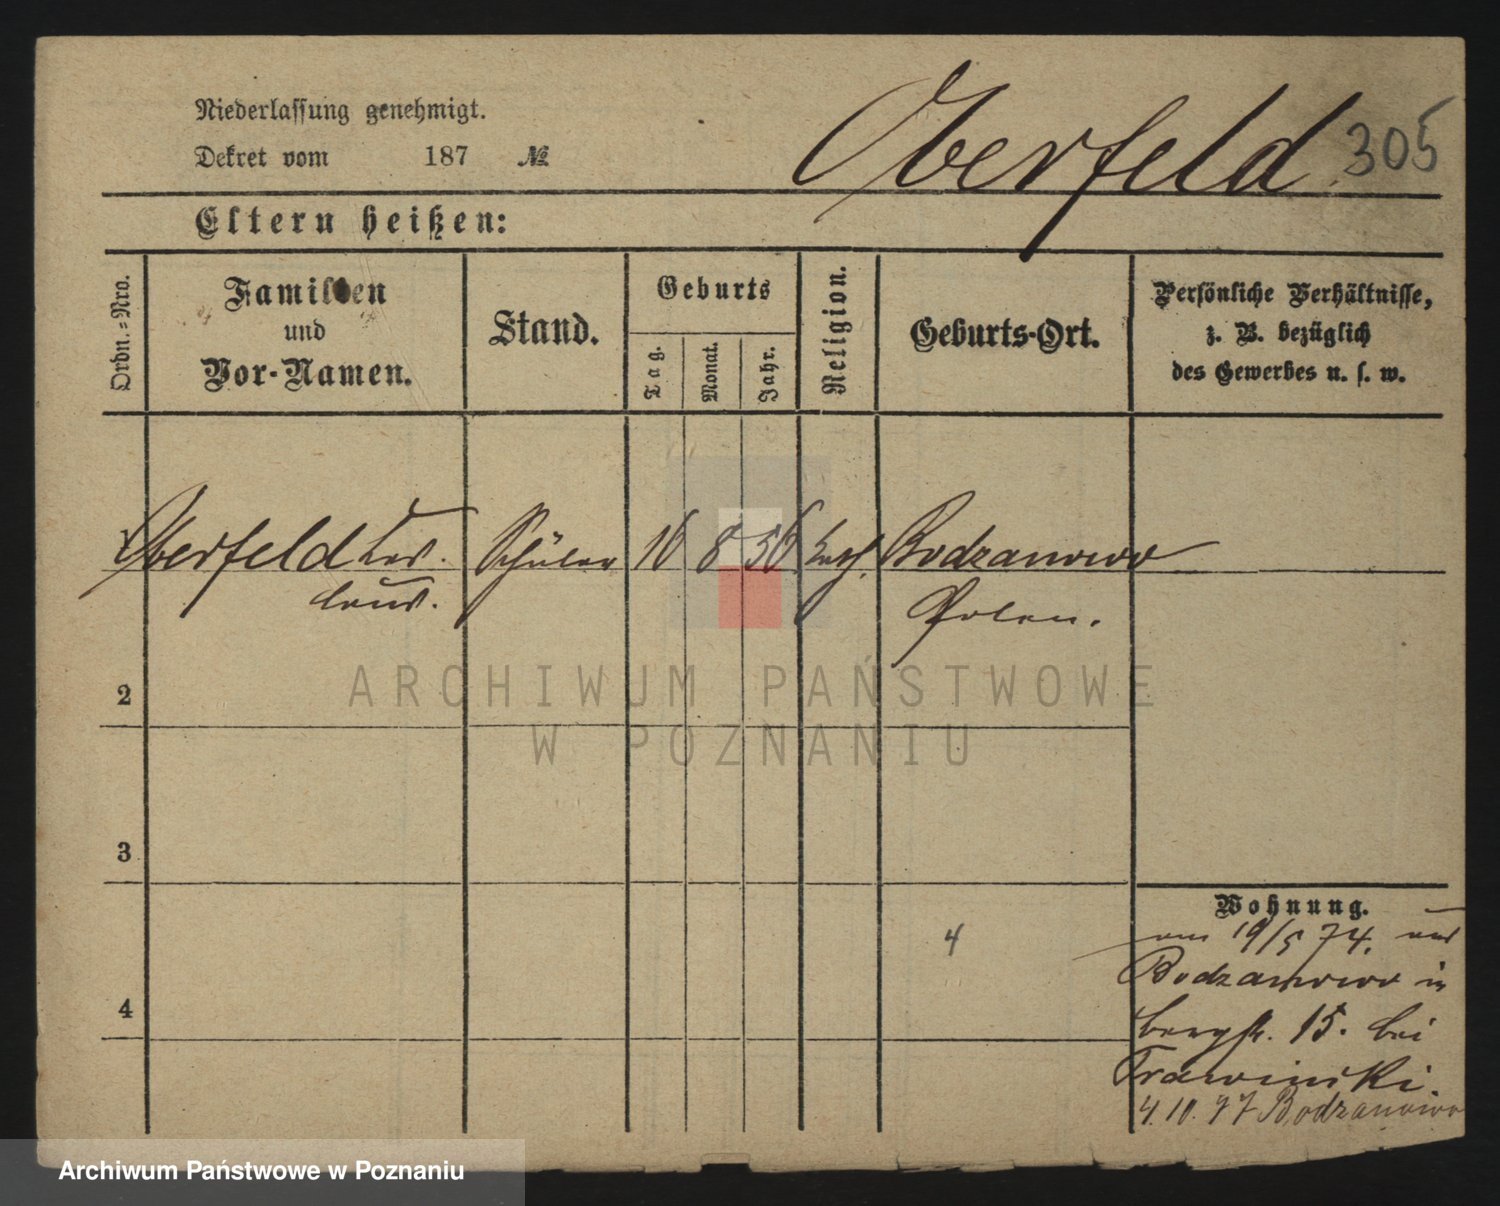 Niederlassung genehmigt.
Dekret vom 187 №
Oberfeld
305
Eltern heißen:
Ordn.-Nro.
Familien
und
Vor-Namen.
Stand.
Geburts
Tag.
Monat.
Jahr.
Religion.
Geburts-Ort.
Persönliche Verhältnisse,
z. B. bezüglich
des Gewerbes u. s. w.
1 Oberfeld Schüler 16 8 56 kath. Bodzanowo
Polen.
2
ARCHIWUM PAŃSTWOWE
W POZNANIU
3
4
4
Wohnung.
19/5 74. aus
Bodzanowo in
Bergstr. 15. bei
Trawinski.
4.10.77 Bodzanowo
Archiwum Państwowe w Poznaniu